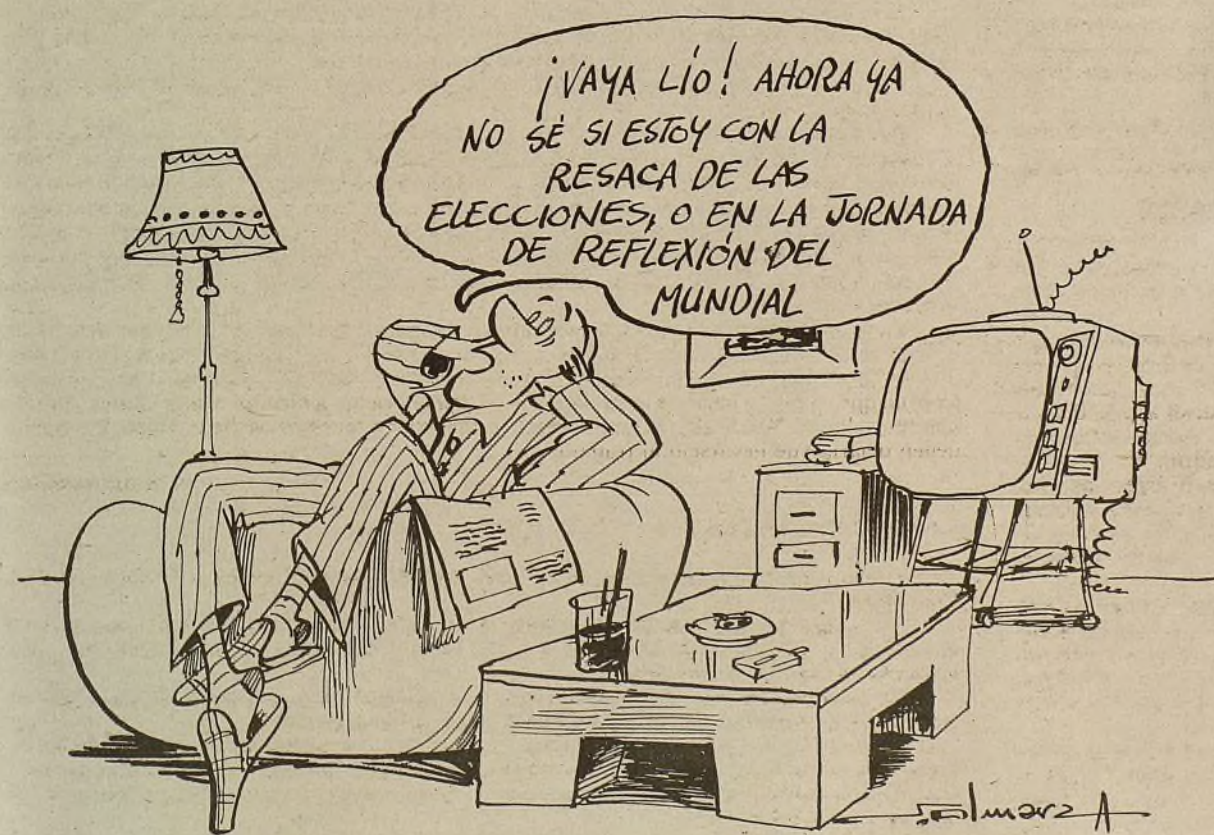 ¡VAYA LÍO! AHORA YA
NO SÉ SI ESTOY CON LA
RESACA DE LAS
ELECCIONES, O EN LA JORNADA
DE REFLEXIÓN DEL
MUNDIAL